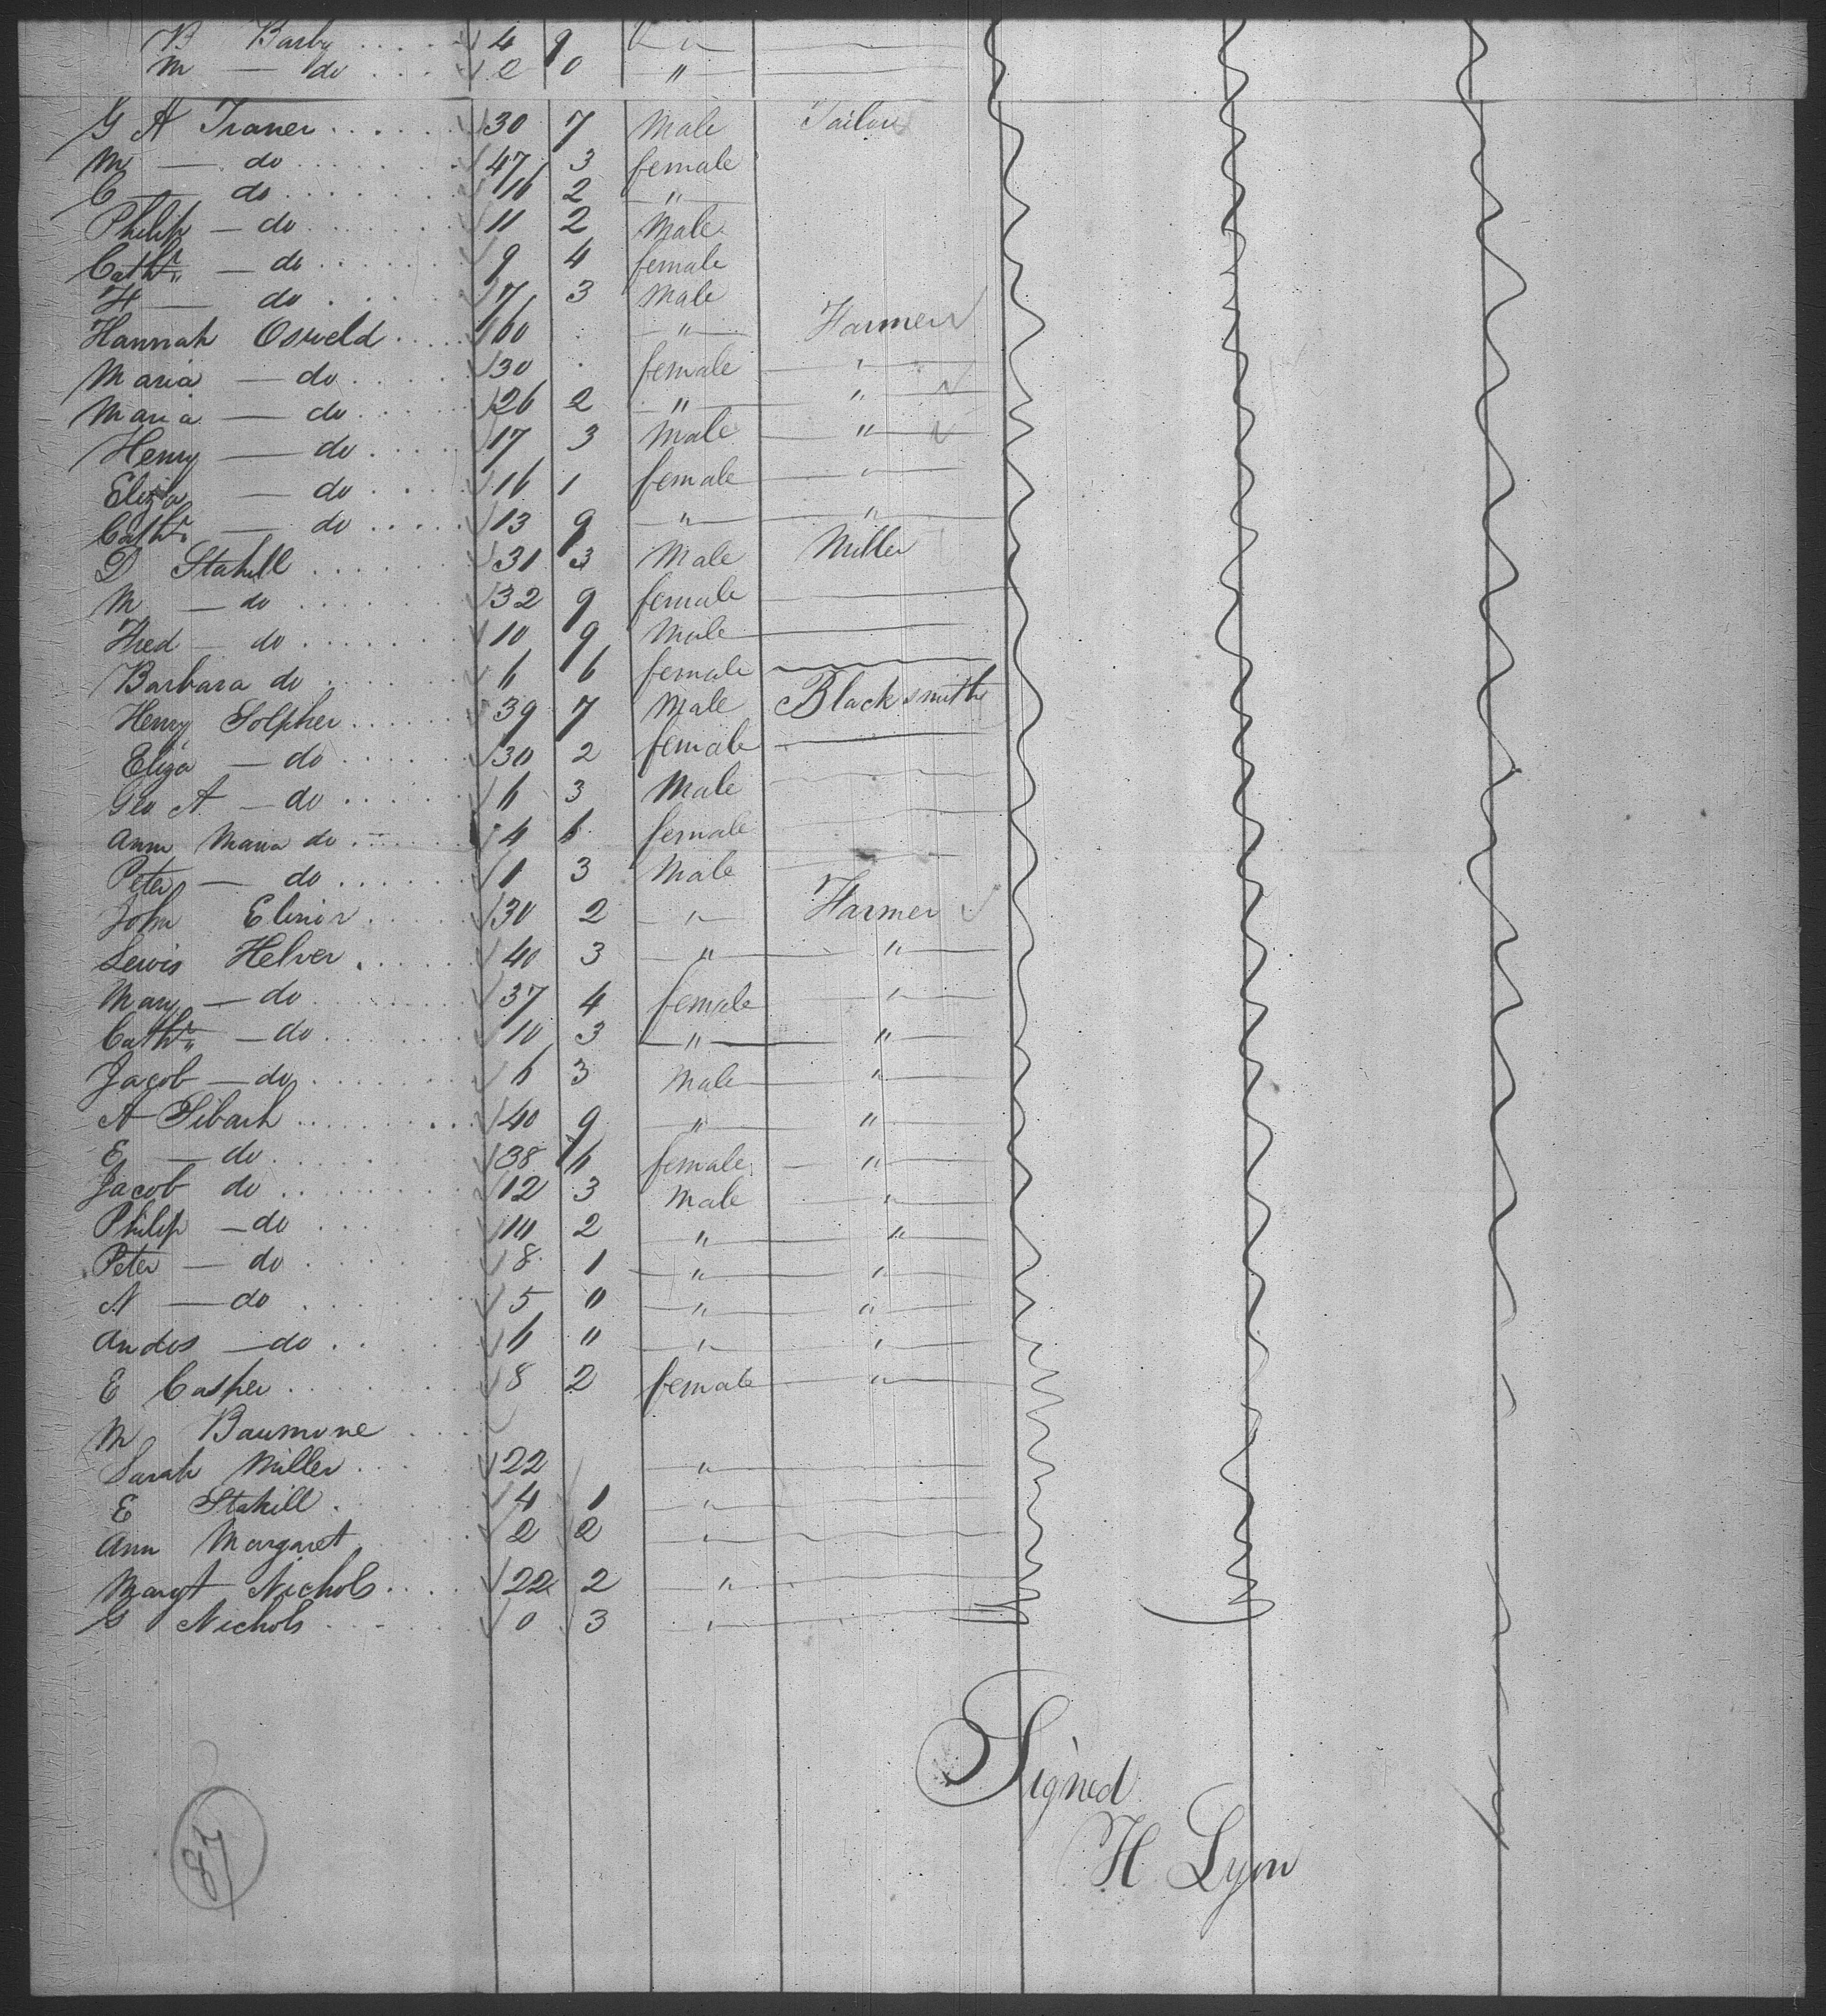 B Barby .... 4 9 "
M — do ... 2 0 "
G A Traner ...... 30 7 Male Tailor
M — do ....... 47 3 female
C — do ....... 16 2 "
Philip — do ...... 11 2 Male
Cathr — do ...... 9 4 female
H — do ...... 7 3 Male
Hannah Osweld ..... 60 . " Farmer
Maria — do ..... 30 . female "
Maria — do ..... 26 2 " "
Henry — do ..... 17 3 Male "
Eliza — do .... 16 1 female "
Cathr — do ..... 13 9 " "
D Stahill ...... 31 3 Male Miller
M — do ...... 32 9 female
Fred — do ..... 10 9 Male
Barbara do ..... 6 6 female
Henry Solpher ...... 39 7 Male Blacksmith
Eliza — do ...... 30 2 female
Geo A — do ..... 6 3 Male
Ann Maria do ..... 4 6 female
Peter — do ...... 1 3 Male
John Elinor ..... 30 2 " Farmer
Lewis Helver ..... 40 3 " "
Mary — do ....... 37 4 female "
Cathr — do ...... 10 3 " "
Jacob — do ....... 6 3 Male "
A Sibach ......... 40 9 " "
E — do ....... 38 6 female "
Jacob do ........ 12 3 Male "
Philip — do ...... 10 2 " "
Peter — do ...... 8 1 " "
N — do ...... 5 0 " "
Andes — do .... 6 " " "
E Casper ....... 8 2 female "
M Baumone ....
Sarah Miller .... 22 "
E Stahill . 4 1 "
Ann Margaret 2 2 "
Margt Nichols .... 22 2 "
G Nichols ..... 0 3 "
Signed
H Lyon